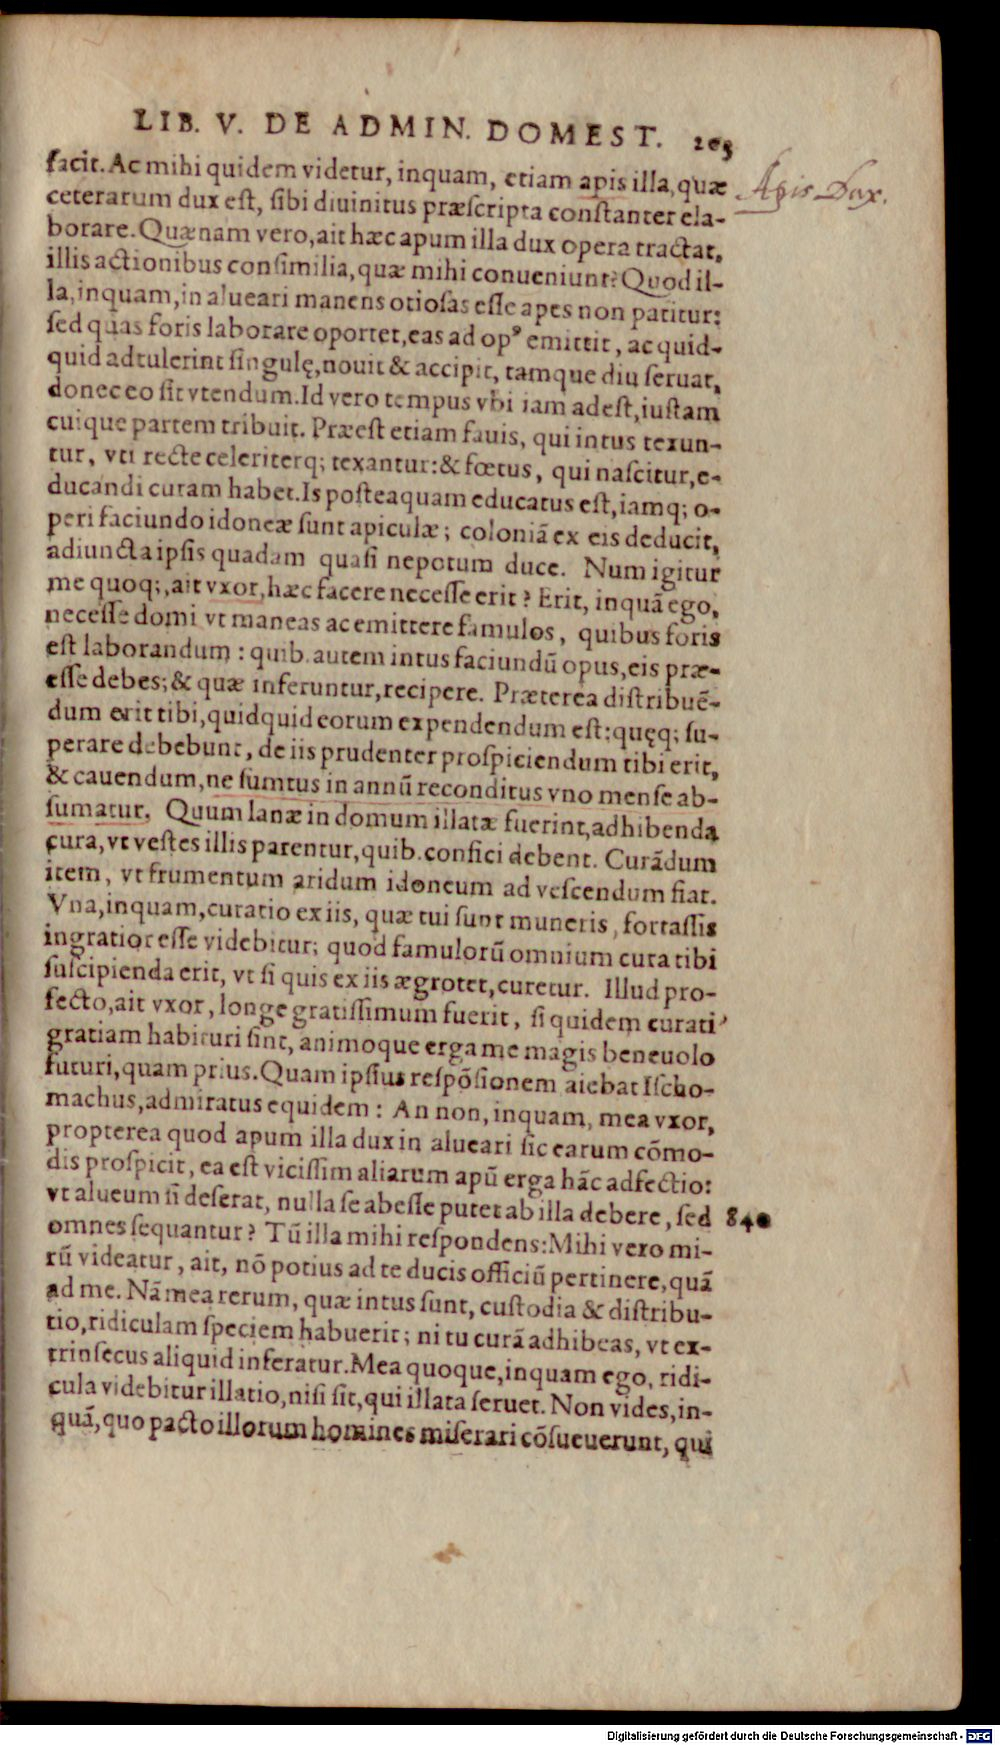 LIB. V. DE ADMIN. DOMEST. 203
facit. Ac mihi quidem videtur, inquam, etiam apis illa, quæ
Apis Dux.
ceterarum dux est, sibi diuinitus præscripta constanter ela-
borare. Quænam vero, ait hæc apum illa dux opera tractat,
illis actionibus consimilia, quæ mihi conueniunt? Quod il-
la, inquam, in alueari manens otiosas esse apes non patitur:
sed quas foris laborare oportet, eas ad opꝰ emittit, ac quid-
quid adtulerint singulę, nouit & accipit, tamque diu seruat,
donec eo sit vtendum. Id vero tempus vbi iam adest, iustam
cuique partem tribuit. Præest etiam fauis, qui intus texun-
tur, vti recte celeriterq; texantur: & fœtus, qui nascitur, e-
ducandi curam habet. Is posteaquam educatus est, iamq; o-
peri faciundo idoneæ sunt apiculæ; coloniã ex eis deducit,
adiuncta ipsis quadam quasi nepotum duce. Num igitur
me quoq;, ait vxor, hæc facere necesse erit? Erit, inquã ego,
necesse domi vt maneas ac emittere famulos, quibus foris
est laborandum: quib. autem intus faciundũ opus, eis præ-
esse debes; & quæ inferuntur, recipere. Præterea distribuẽ-
dum erit tibi, quidquid eorum expendendum est: quęq; su-
perare debebunt, de iis prudenter prospiciendum tibi erit,
& cauendum, ne sumtus in annũ reconditus vno mense ab-
sumatur. Quum lanæ in domum illatæ fuerint, adhibenda
cura, vt vestes illis parentur, quib. confici debent. Curãdum
item, vt frumentum aridum idoneum ad vescendum fiat.
Vna, inquam, curatio ex iis, quæ tui sunt muneris, fortassis
ingratior esse videbitur; quod famulorũ omnium cura tibi
suscipienda erit, vt si quis ex iis ægrotet, curetur. Illud pro-
fecto, ait vxor, longe gratissimum fuerit, si quidem curati
gratiam habituri sint, animoque erga me magis beneuolo
futuri, quam prius. Quam ipsius respõsionem aiebat Ischo-
machus, admiratus equidem: An non, inquam, mea vxor,
propterea quod apum illa dux in alueari sic earum cõmo-
dis prospicit, ea est vicissim aliarum apũ erga hãc adfectio:
vt alueum si deserat, nulla se abesse putet ab illa debere, sed
840
omnes sequantur? Tũ illa mihi respondens: Mihi vero mi-
rũ videatur, ait, nõ potius ad te ducis officiũ pertinere, quã
ad me. Nã mea rerum, quæ intus sunt, custodia & distribu-
tio, ridiculam speciem habuerit; ni tu curã adhibeas, vt ex-
trinsecus aliquid inferatur. Mea quoque, inquam ego, ridi-
cula videbitur illatio, nisi sit, qui illata seruet. Non vides, in-
quã, quo pacto illorum homines miserari cõsueuerunt, qui
Digitalisierung gefördert durch die Deutsche Forschungsgemeinschaft - DFG